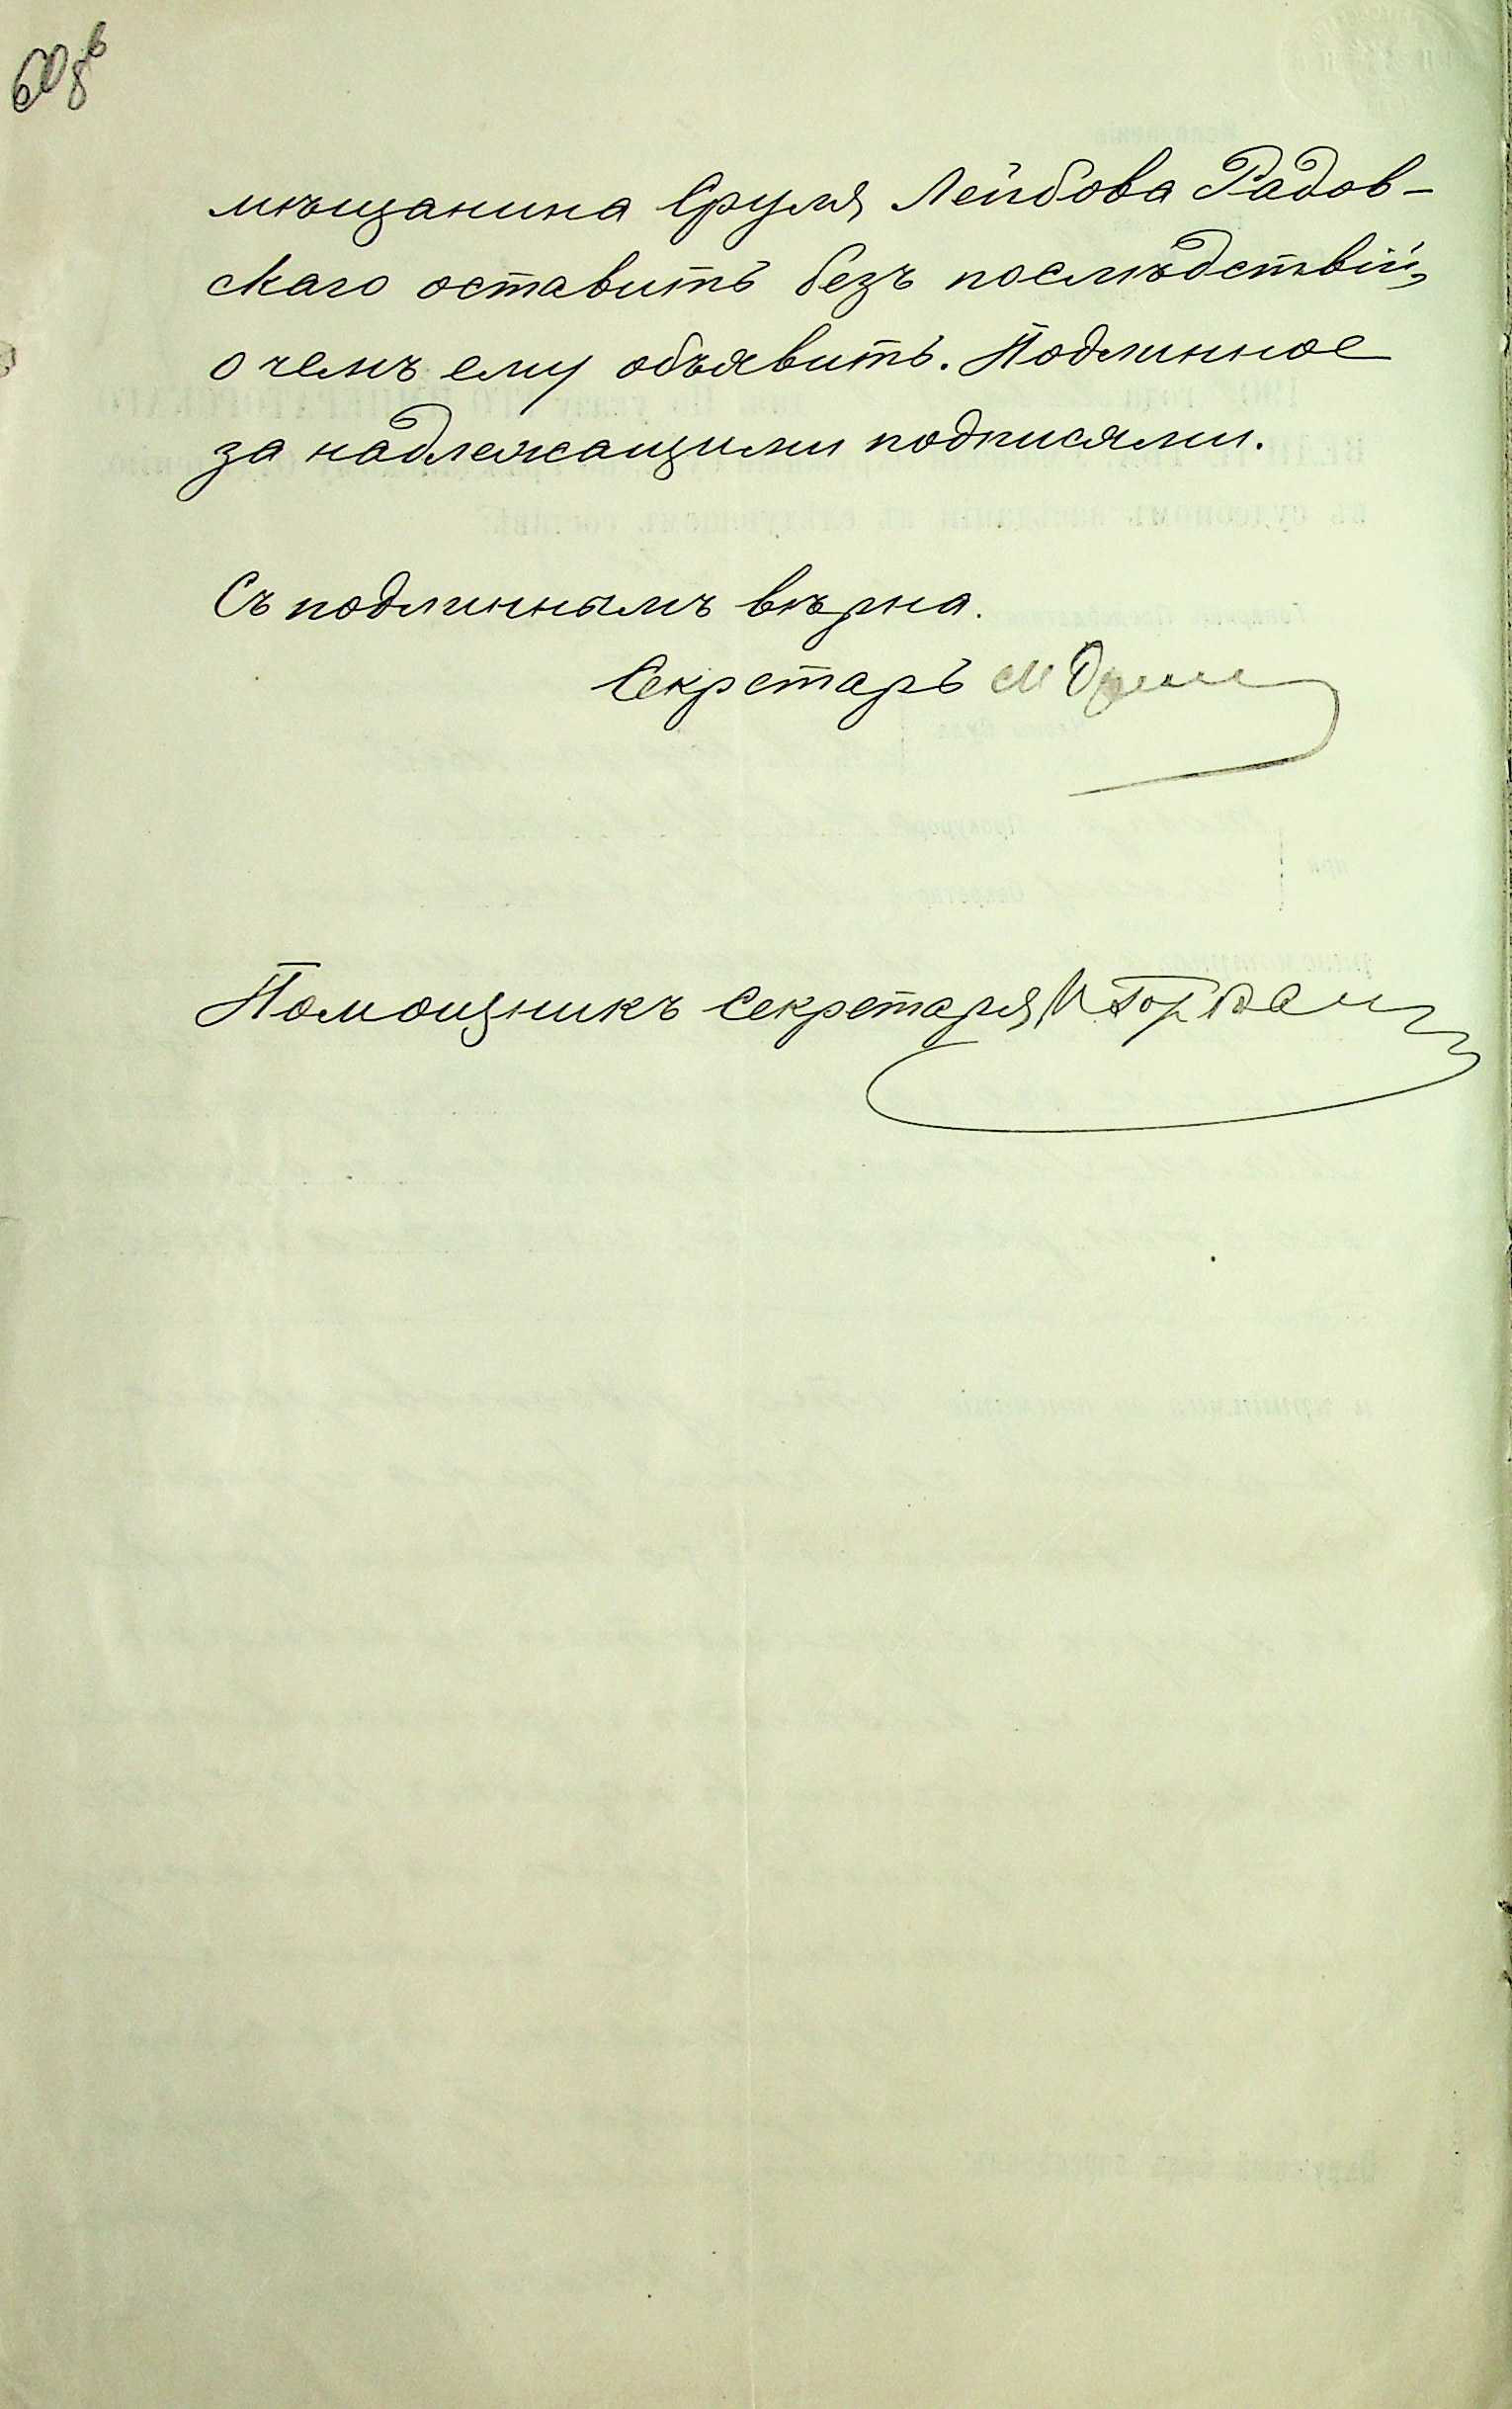 мѣщанина Сруля Лейбова Радов-
скаго оставить безъ послѣдствій,
о чемъ ему объявить. Подлинное
за надлежащими подписями.
Съ подлиннымъ вѣрна.
Секретарь
Помощникъ Секретаря